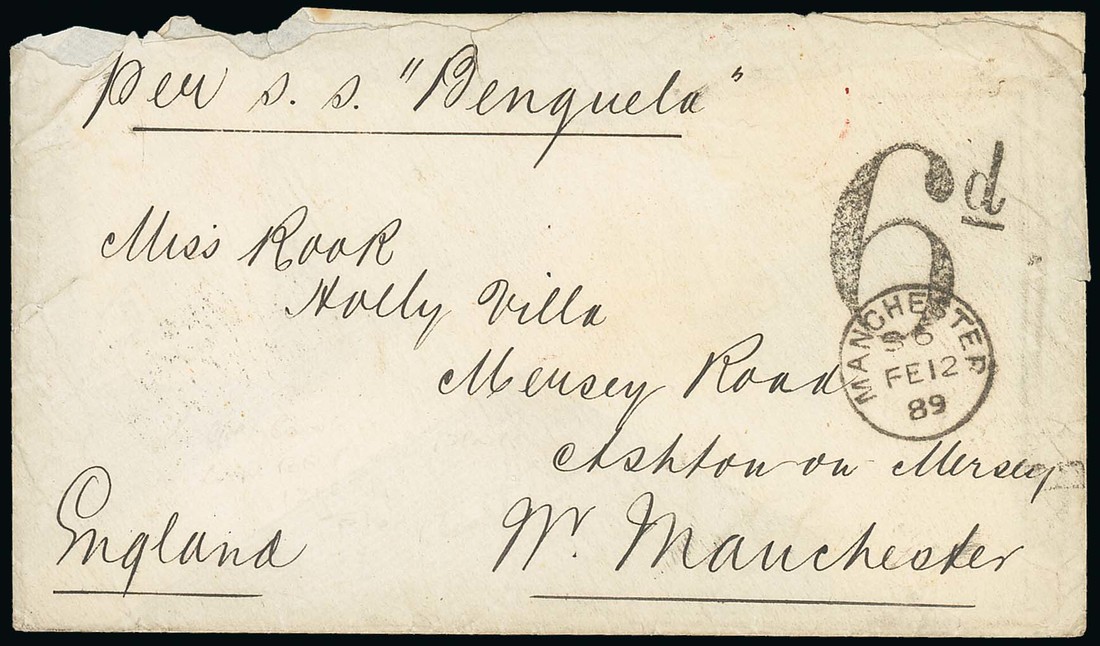 Per s.s. "Benguela"
6d
Miss Rook
Holly Villa
MANCHESTER
S6
FE12
89
Mersey Road
Ashton-on Mersey
England
Nr. Manchester